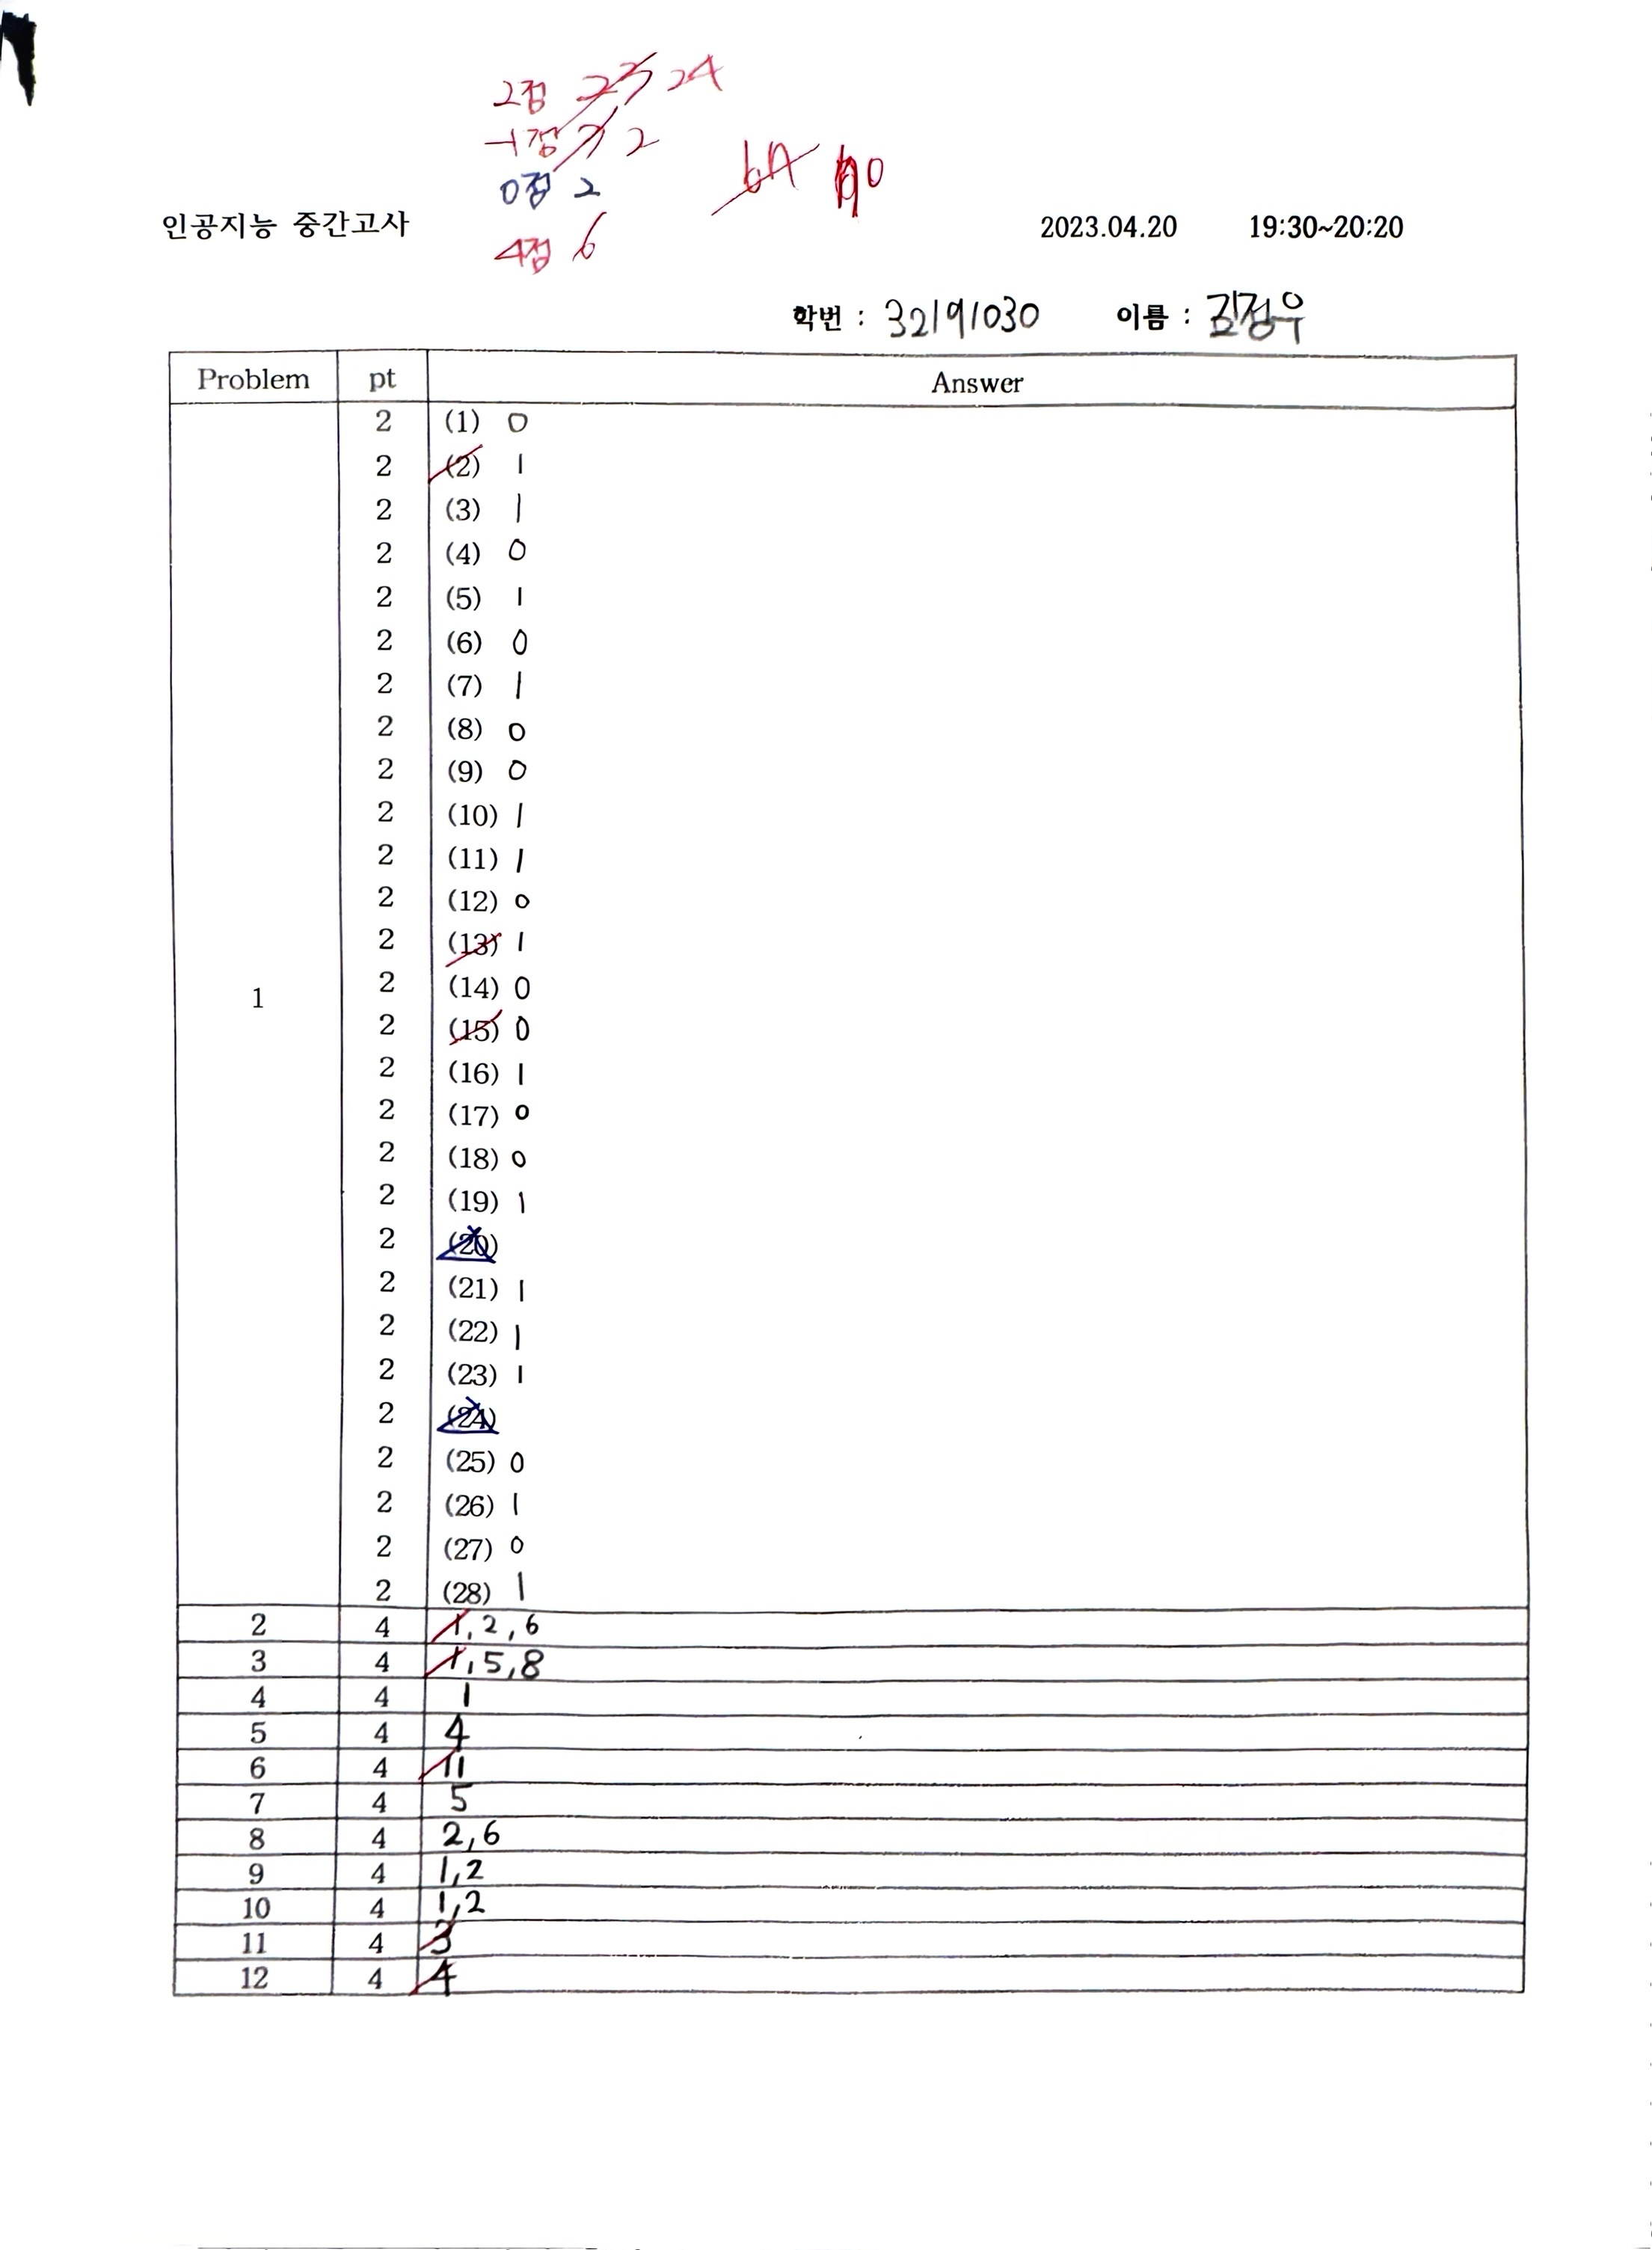 2점 23 24
-1점 3 2
0점 2
67 70
인공지능 중간고사 2023.04.20 19:30~20:20
4점 6
학번 : 32191030 이름 : 김정우
Problem pt Answer
2 (1) 0
2 (2) 1
2 (3) 1
2 (4) 0
2 (5) 1
2 (6) 0
2 (7) 1
2 (8) 0
2 (9) 0
2 (10) 1
2 (11) 1
2 (12) 0
2 (13) 1
2 (14) 0
1
2 (15) 0
2 (16) 1
2 (17) 0
2 (18) 0
2 (19) 1
2 (20)
2 (21) 1
2 (22) 1
2 (23) 1
2 (24)
2 (25) 0
2 (26) 1
2 (27) 0
2 (28) 1
2 4 1, 2, 6
3 4 1, 5, 8
4 4 1
5 4 4
6 4 11
7 4 5
8 4 2, 6
9 4 1, 2
10 4 1, 2
11 4 3
12 4 4